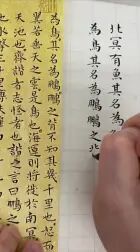 北冥有魚其名
為鳥其名為鵬鵬之
為鳥其名為鵬鵬之背不知其幾千里也怒而
翼若垂天之雲是鳥也海運則將徙於南冥
天池也齊諧者志怪者也諧之言曰鵬之